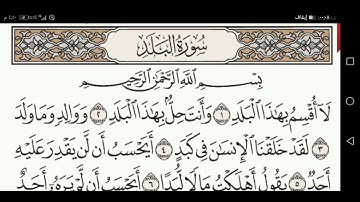 إيقاف
سُورَةُ البَلَدِ
بِسْمِ اللَّهِ الرَّحْمَٰنِ الرَّحِيمِ
لَا أُقْسِمُ بِهَٰذَا الْبَلَدِ ١ وَأَنتَ حِلٌّ بِهَٰذَا الْبَلَدِ ٢ وَوَالِدٍ وَمَا وَلَدَ
٣ لَقَدْ خَلَقْنَا الْإِنسَانَ فِي كَبَدٍ ٤ أَيَحْسَبُ أَن لَّن يَقْدِرَ عَلَيْهِ
أَحَدٌ ٥ يَقُولُ أَهْلَكْتُ مَالًا لُّبَدًا ٦ أَيَحْسَبُ أَن لَّمْ يَرَهُ أَحَدٌ